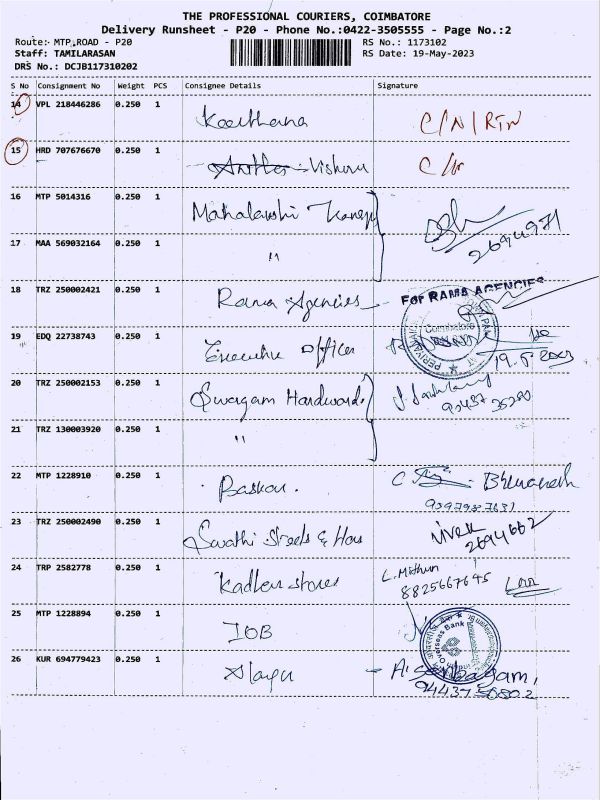 THE PROFESSIONAL COURIERS, COIMBATORE
Delivery Runsheet - P20 - Phone No.:0422-3505555 - Page No.:2
Route:- MTP ROAD - P20 RS No.: 1173102
Staff: TAMILARASAN RS Date: 19-May-2023
DRS No.: DCJB117310202
S No Consignment No Weight PCS Consignee Details Signature
14 VPL 218446286 0.250 1 Keerthana C/N/RTN
15 HRD 707676670 0.250 1 Vishnu
16 MTP 5014316 0.250 1 Mahalakshi
2694971
17 MAA 569032164 0.250 1 "
18 TRZ 250002421 0.250 1 Rama Agencies For RAMA AGENCIES
Coimbatore
19 EDQ 22738743 0.250 1 Executive Officer
20 TRZ 250002153 0.250 1 Swagam Hardware
21 TRZ 130003920 0.250 1 "
22 MTP 1228910 0.250 1 Baskar. Bhuvanesh
23 TRZ 250002490 0.250 1 Swathi Steels & Hou Vivek
2694662
24 TRP 2582778 0.250 1 stores L. Mithun
8825667695
25 MTP 1228894 0.250 1 IOB
Overseas Bank
26 KUR 694779423 0.250 1 Alagu